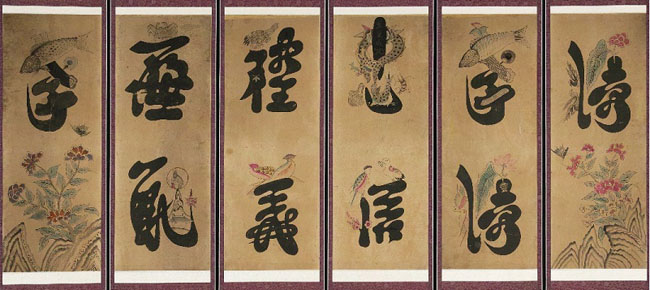 悌
孝悌
忠信
禮義
廉恥
孝